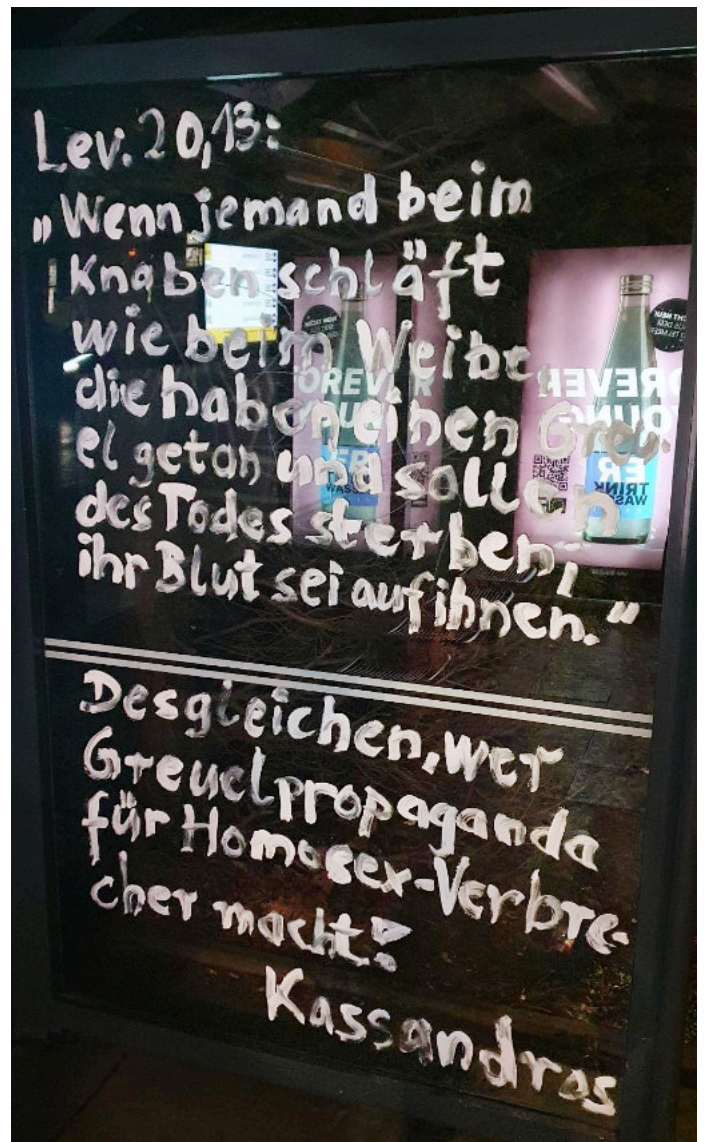 Lev. 20,13:
„Wenn jemand beim
Knaben schläft
wie beim Weibe,
die haben einen Greu-
el getan und sollen
des Todes sterben;
ihr Blut sei auf ihnen.“
Desgleichen, wer
Greuelpropaganda
für Homosex-Verbre-
cher macht!
Kassandros
FOREVER
YOUNG
ER
TRINK
WAS